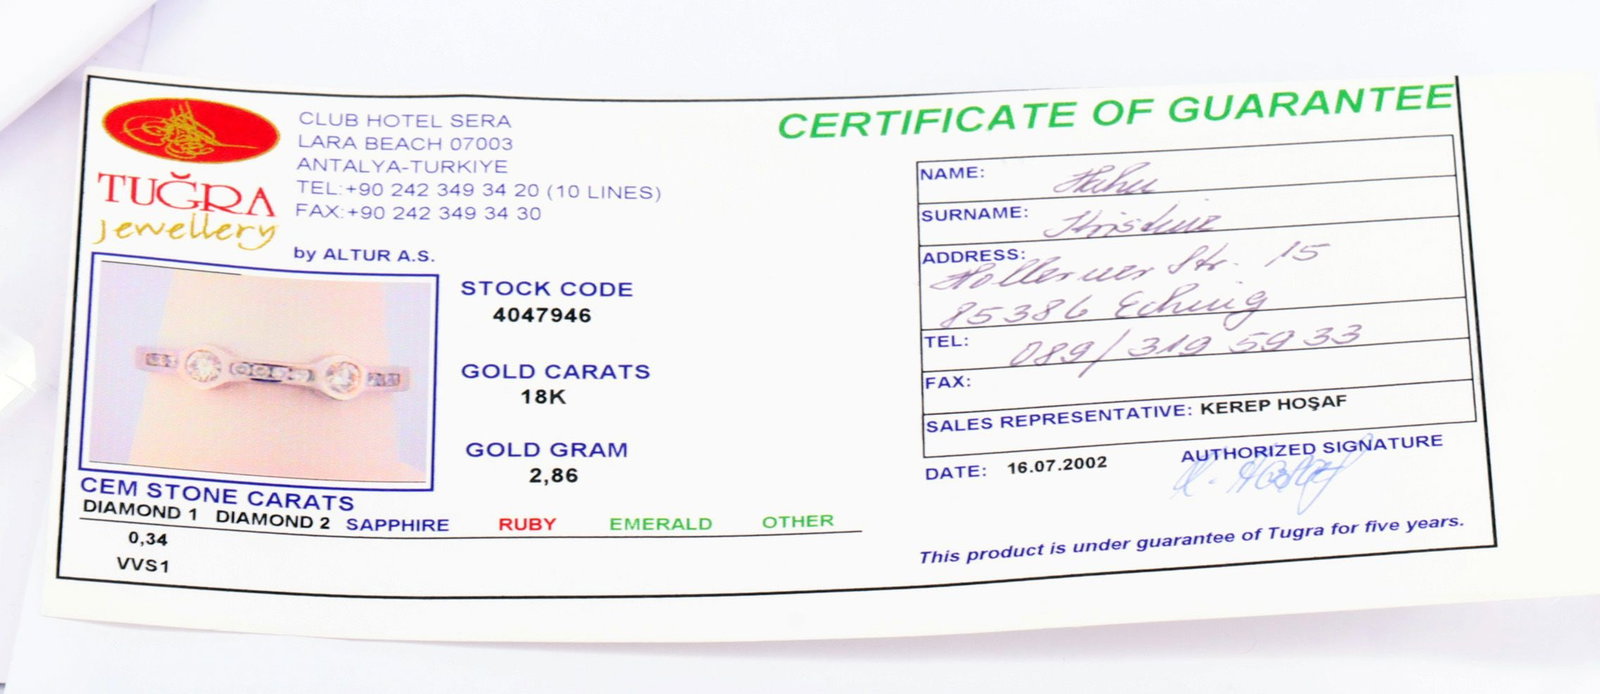 TUĞRA
jewellery
CLUB HOTEL SERA
LARA BEACH 07003
ANTALYA-TURKIYE
TEL:+90 242 349 34 20 (10 LINES)
FAX:+90 242 349 34 30
by ALTUR A.S.
STOCK CODE
4047946
GOLD CARATS
18K
GOLD GRAM
2,86
CEM STONE CARATS
DIAMOND 1 DIAMOND 2 SAPPHIRE RUBY EMERALD OTHER
0,34
VVS1
CERTIFICATE OF GUARANTEE
NAME: Hahn
SURNAME: Kristine
ADDRESS:
Hollerner Str. 15
85386 Eching
TEL: 089/319 59 33
FAX:
SALES REPRESENTATIVE: KEREP HOŞAF
DATE: 16.07.2002
AUTHORIZED SIGNATURE
This product is under guarantee of Tugra for five years.